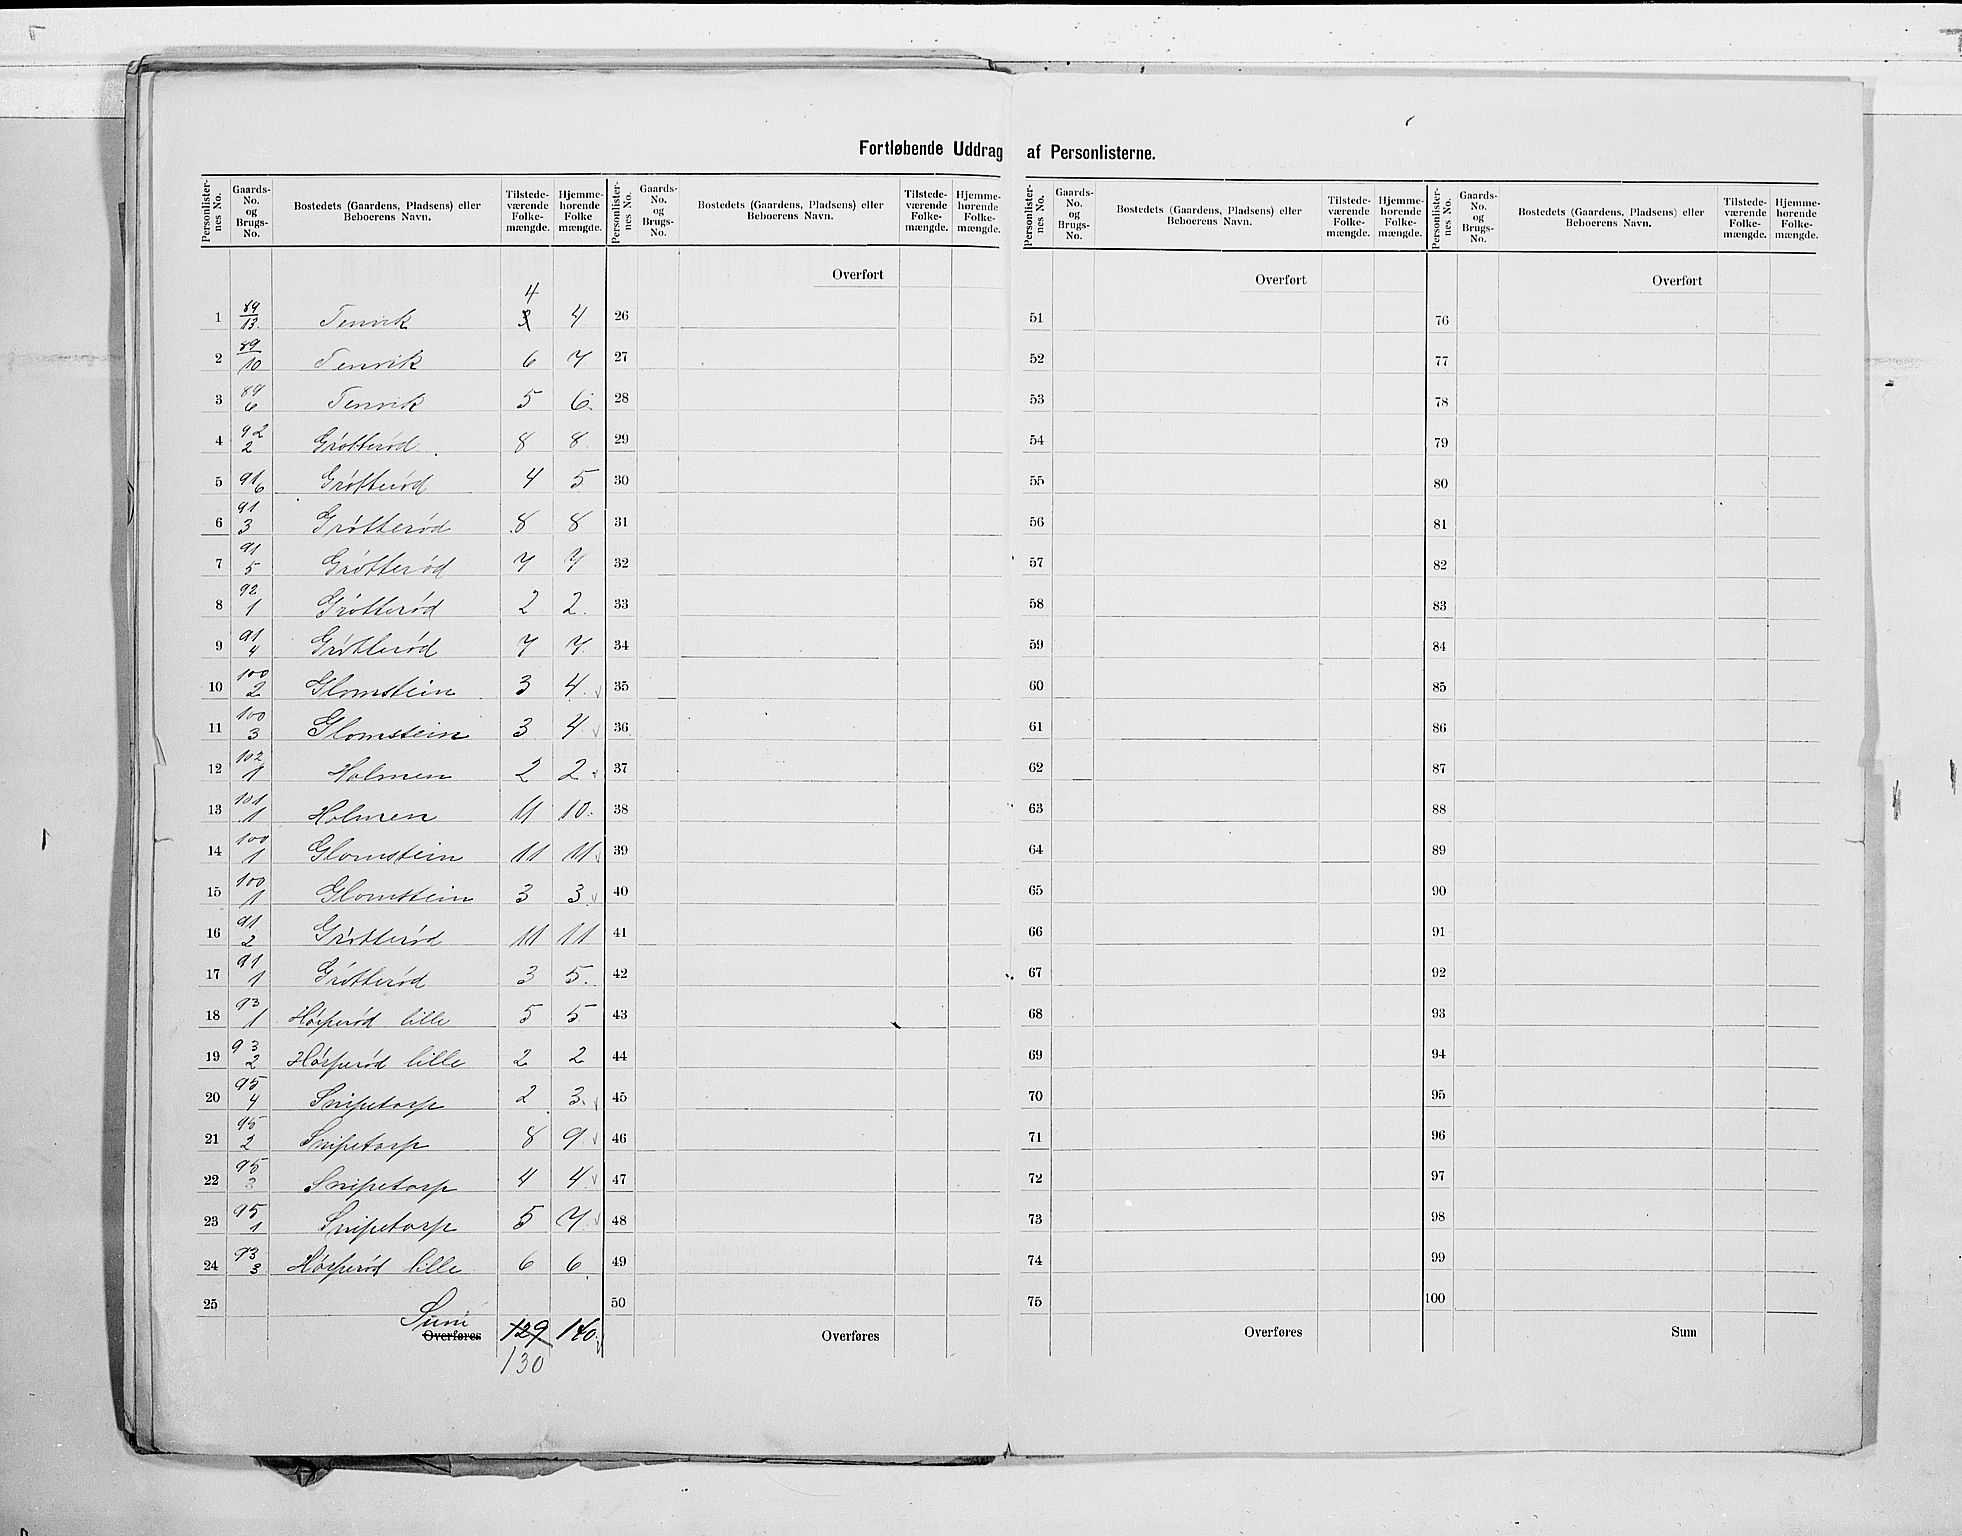 Fortløbende Uddrag af Personlisterne.
Personlister-nes No. Gaards-No. og Brugs-No. Bostedets (Gaardens, Pladsens) eller Beboerens Navn. Tilstede-værende Folke-mængde. Hjemme-hørende Folke mængde. Personlister-nes No. Gaards-No. og Brugs-No. Bostedets (Gaardens, Pladsens) eller Beboerens Navn. Tilstede-værende Folke-mængde. Hjemme-hørende Folke-mængde. Personlister-nes No. Gaards-No. og Brugs-No. Bostedets (Gaardens, Pladsens) eller Beboerens Navn. Tilstede-værende Folke-mængde. Hjemme-hørende Folke-mængde. Personlister-nes No. Gaards-No. og Brugs-No. Bostedets (Gaardens, Pladsens) eller Beboerens Navn. Tilstede-værende Folke-mængde. Hjemme-hørende Folke-mængde.
Overført Overført Overført
1 89/13. Tenvik 4 4 26 51 76
2 89/10 Tenvik 6 7 27 52 77
3 89/6 Tenvik 5 6. 28 53 78
4 92/2 Grøtterød. 8 8 29 54 79
5 91/6 Grøtterød 4 5 30 55 80
6 91/3 Grøtterød 8 8 31 56 81
7 91/5 Grøtterød 7 7 32 57 82
8 92/1 Grøtterød 2 2. 33 58 83
9 91/4 Grøtterød 7 7. 34 59 84
10 100/2 Glomstein 3 4. 35 60 85
11 100/3 Glomstein 3 4. 36 61 86
12 102/1 Holmen 2 2 37 62 87
13 101/1 Holmen 11 10. 38 63 88
14 100/1 Glomstein 11 11 39 64 89
15 100/1 Glomstein 3 3 40 65 90
16 91/2 Grøtterød 11 11 41 66 91
17 91/1 Grøtterød 3 5. 42 67 92
18 93/1 Hørperød lille 5 5 43 68 93
19 93/2 Hørperød lille 2 2 44 69 94
20 95/4 Snipetorp 2 3. 45 70 95
21 95/2 Snipetorp 8 9 46 71 96
22 95/3 Snipetorp 4 4 47 72 97
23 95/1 Snipetorp 5 7 48 73 98
24 93/3 Hørperød lille 6 6. 49 74 99
25 50 75 100
Sum
Overføres 129 140. Overføres Overføres Sum
130